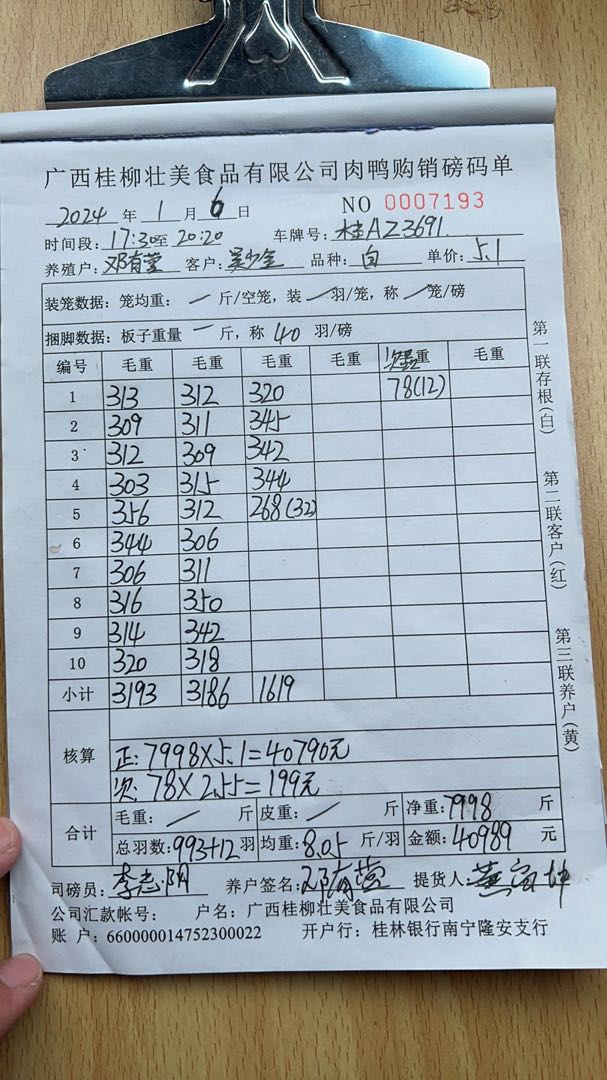 广西桂柳壮美食品有限公司肉鸭购销磅码单
2024 年 1 月 6 日 NO 0007193
时间段: 17:30至 20:20 车牌号: 桂AZ3691
养殖户: 邓有萱 客户: 吴少金 品种: 白 单价: 5.1
装笼数据: 笼均重: / 斤/空笼, 装 / 羽/笼, 称 / 笼/磅
捆脚数据: 板子重量 一 斤, 称 40 羽/磅
编号 毛重 毛重 毛重 毛重 重 毛重
1 313 312 320 78(12)
2 309 311 345
3 312 309 342
4 303 315 344
5 356 312 268(32)
6 344 306
7 306 311
8 316 350
9 314 342
10 320 318
小计 3193 3186 1619
核算 正: 7998×5.1=40790元
次: 78×2.55=199元
合计 毛重: / 斤 皮重: / 斤 净重: 7998 斤
总羽数: 993+12 羽 均重: 8.05 斤/羽 金额: 40989 元
司磅员: 李志阴 养户签名: 邓有萱 提货人:
公司汇款帐号: 户名: 广西桂柳壮美食品有限公司
账 户: 660000014752300022 开户行: 桂林银行南宁隆安支行
第一联存根(白)
第二联客户(红)
第三联养户(黄)